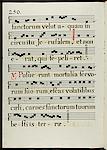 250.
functorum velut a quam in
circuitu Jerusalem, et non
erat, qui sepeliret.
℣. Posuerunt mortalia servo-
rum tuorum escas volatilibus
cœli, carnes sanctorum tuorum
bestiis terræ.